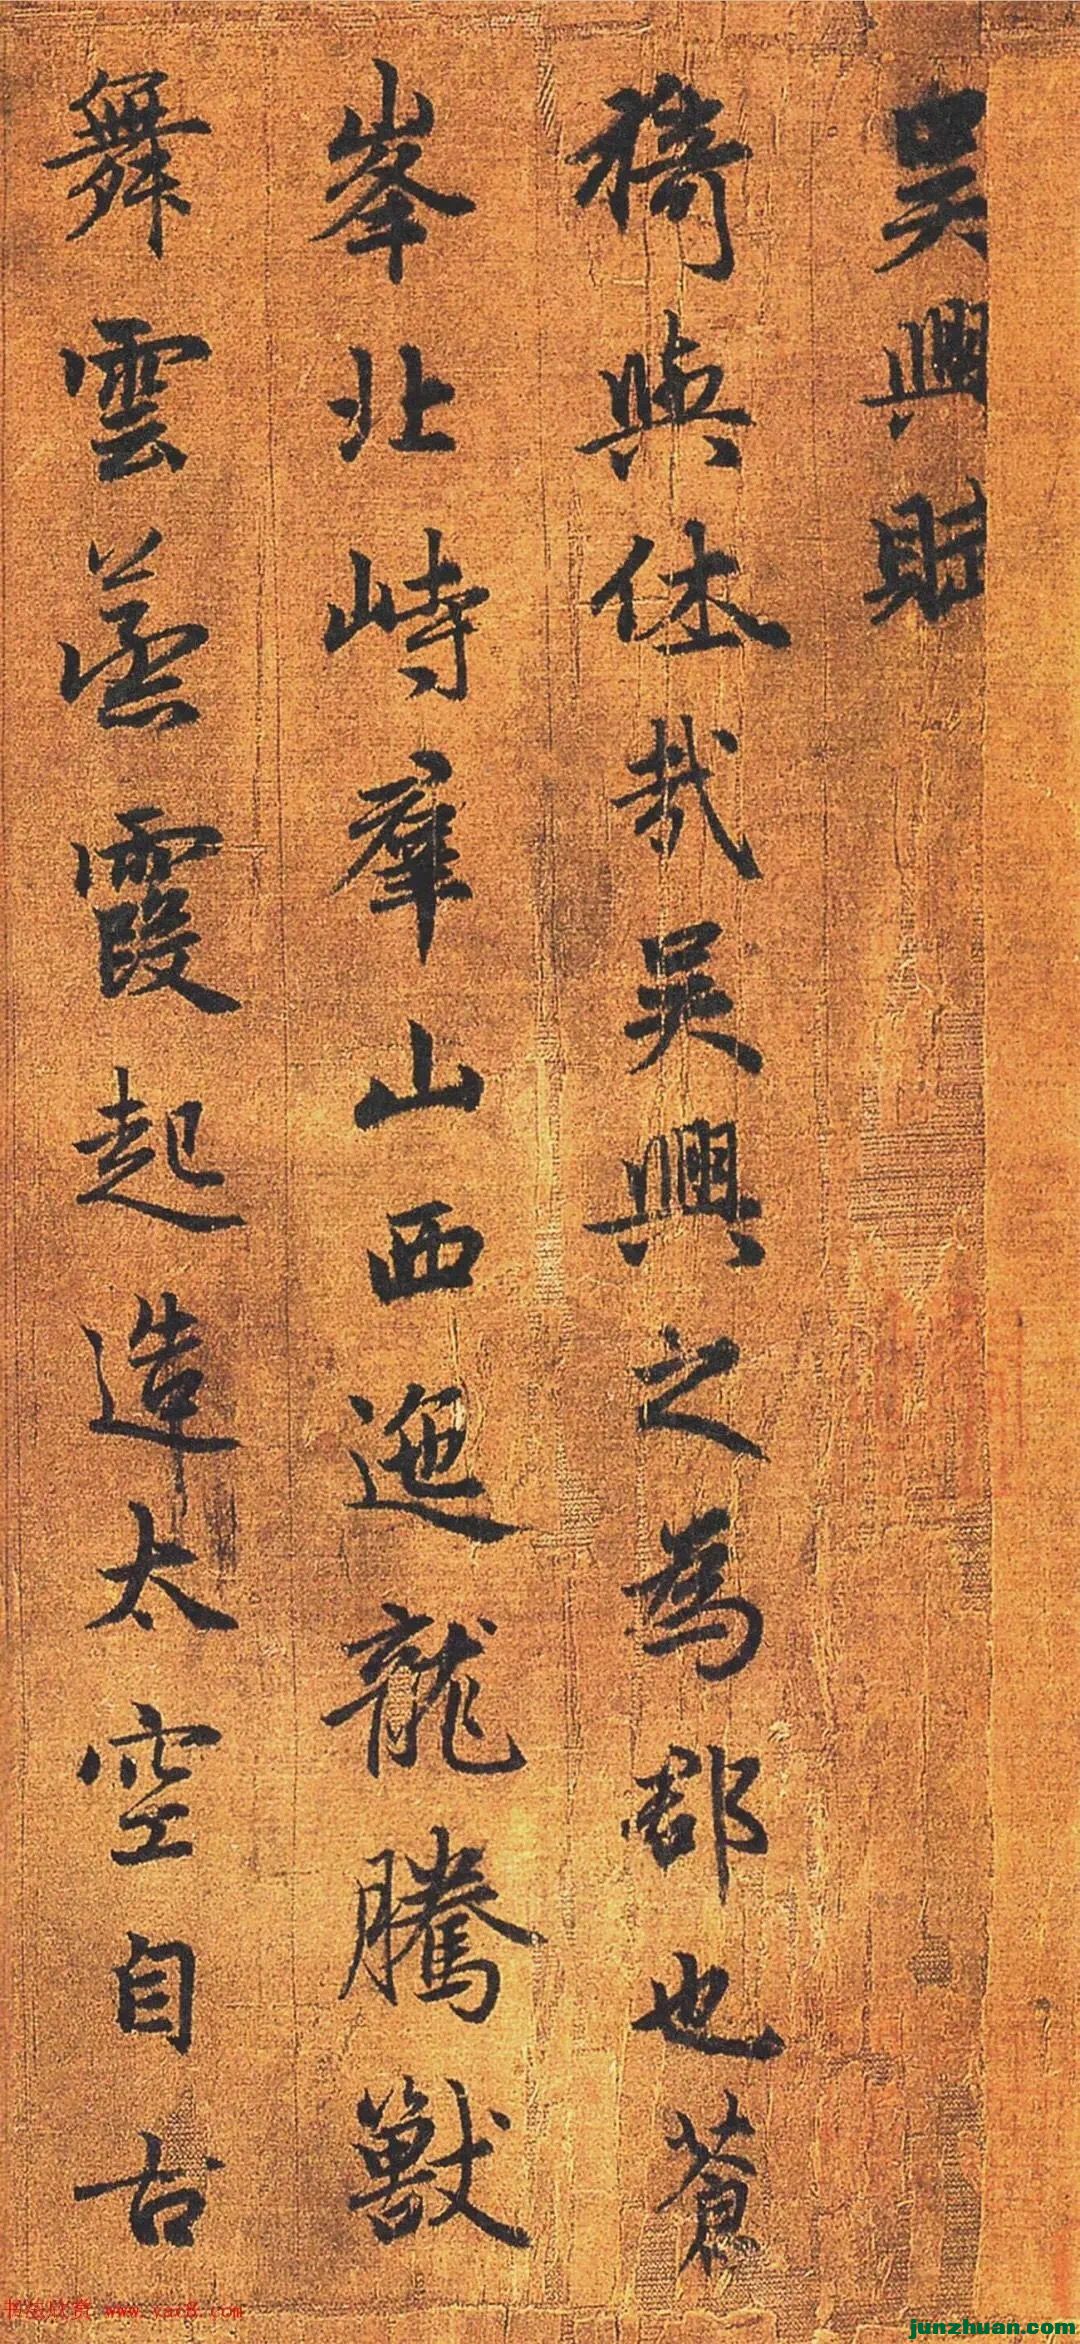 吳興賦
猗與休哉吳興之為郡也蒼
峯北峙羣山西迤龍騰獸
舞雲蒸霞起造太空自古
书法欣赏 www.yac8.com
junzhuan.com